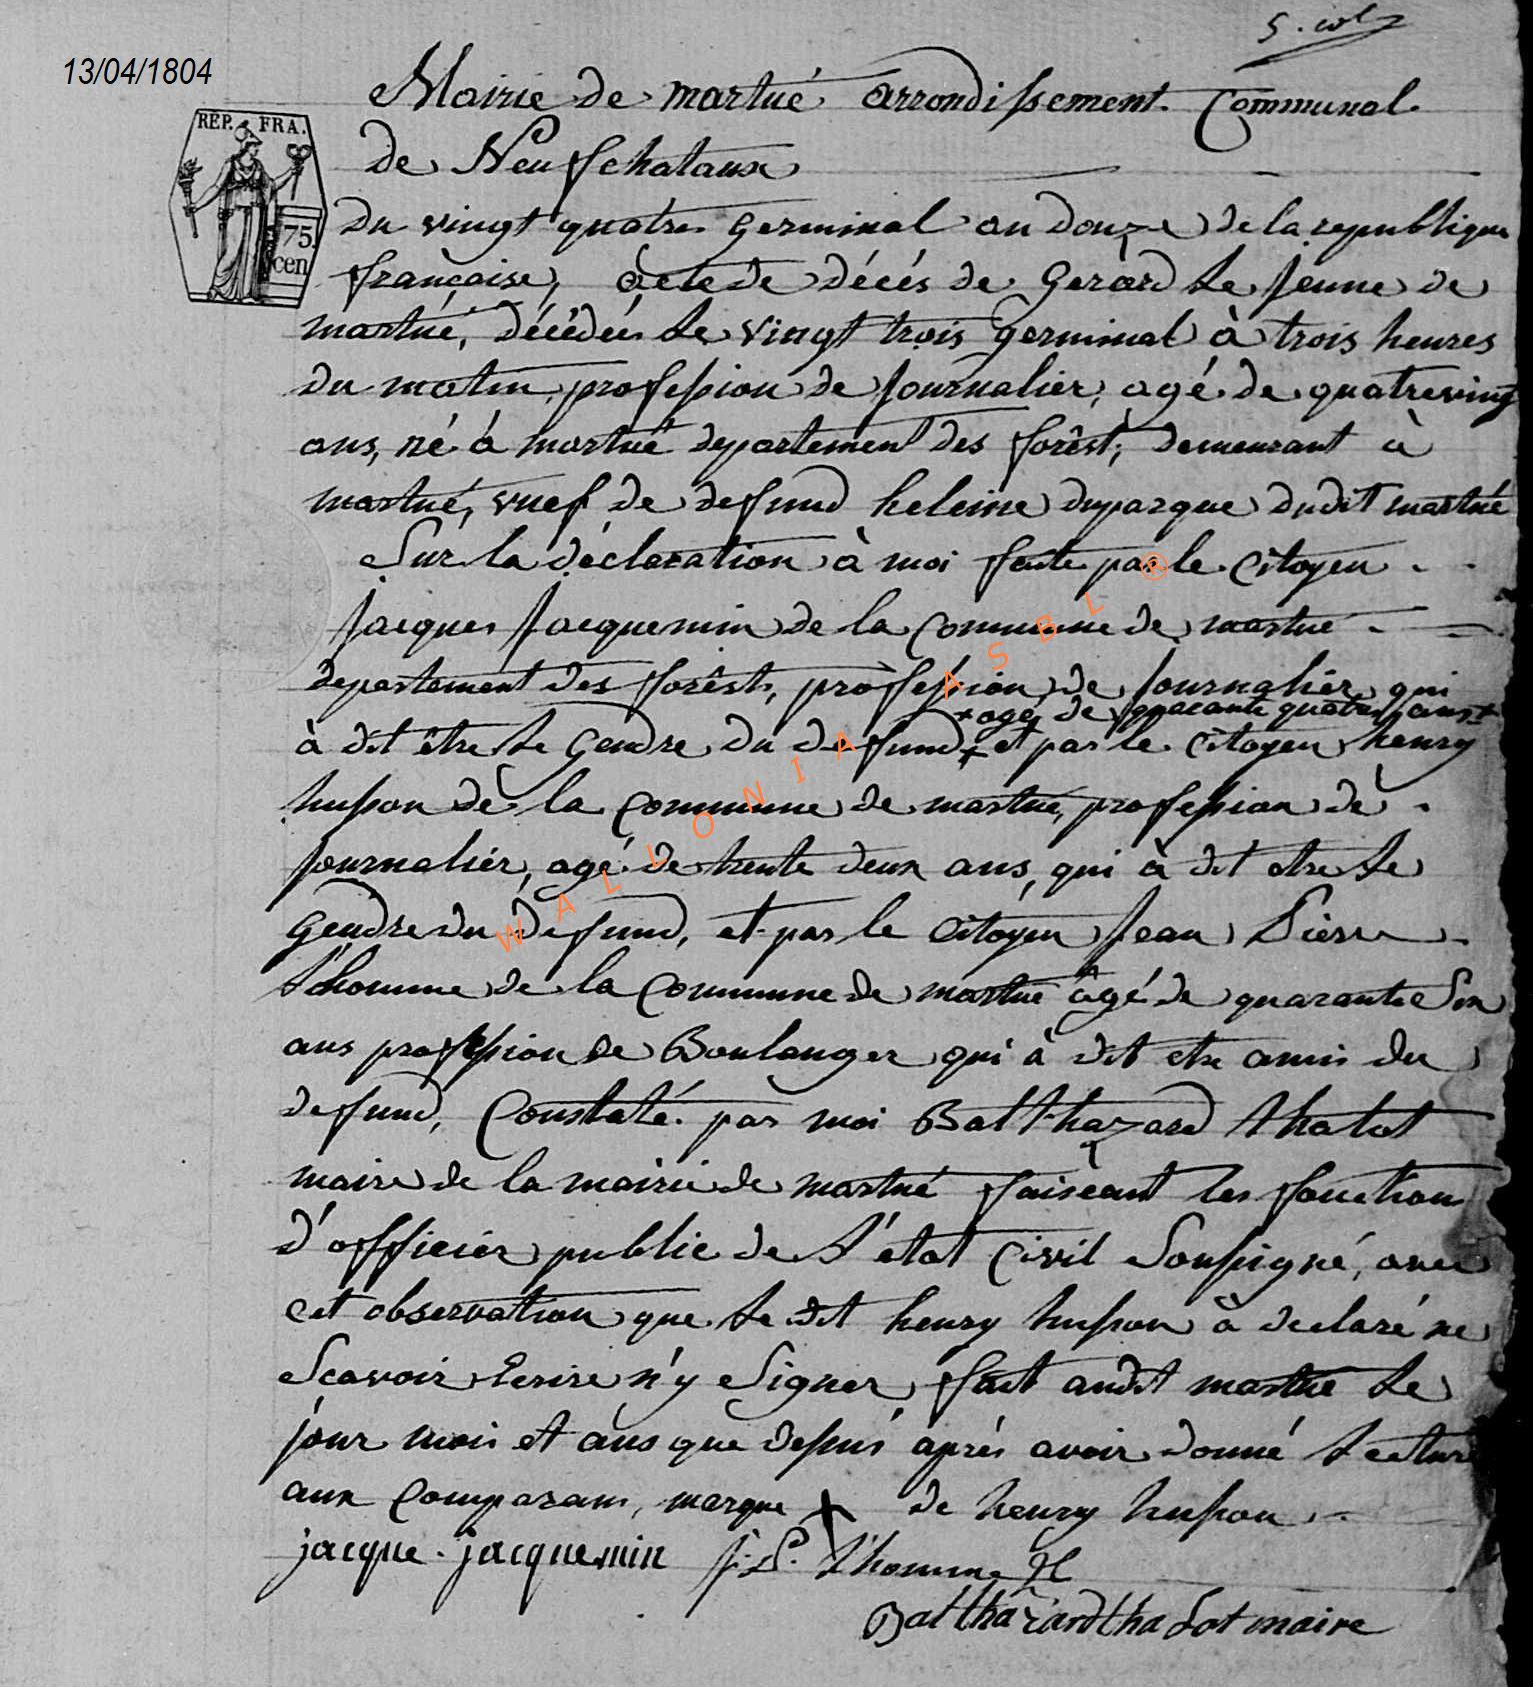 5. col
13/04/1804
Mairie de martué arrondissement Communal
de Neufchataux
REP. FRA.
75.
cen
Du vingt quatre germinal an douze de la republique
française, acte de décés de Gerard Le Jeune de
martué, décédée Le vingt trois germinal à trois heures
du matin, profession de Journalier, agé de quatreving
ans, né à martué departement des forêst, demeurant à
martué, vuef de defund heleine duparque dudit martué
Sur la déclaration à moi faite par le Citoyen
Jacques Jacquemin de la Commune de martué
departement des forêsts, profession de Journalier qui
+ agé de quarante quatre ans +
à dit être Le Gendre du defund + et par le Citoyen henry
husson de la Commune de martué, profession de
Journalier, agé de trente deux ans, qui à dit etre Le
Gendre du defund, et par le Citoyen Jean Pierre
L'homme de la Commune de martué agé de quarante Six
ans profession de Boulanger qui à dit etre amis du
defund, Constaté par moi Balthazard thatot
maire de la mairie de martué faiseant les fonction
d'officier public de L'état Civil Soussigné, avec
cet observation que Le dit henry husson à declaré ne
Scavoir Ecrire n'y Signer, fait audit martué Le
jour mois et ans que dessus aprés avoir donné Lecture
aux Comparans, marque X de henry husson
jacque jacquemin J. P. L'homme
Balthazard thatot maire
WALLONIA ASBL ®